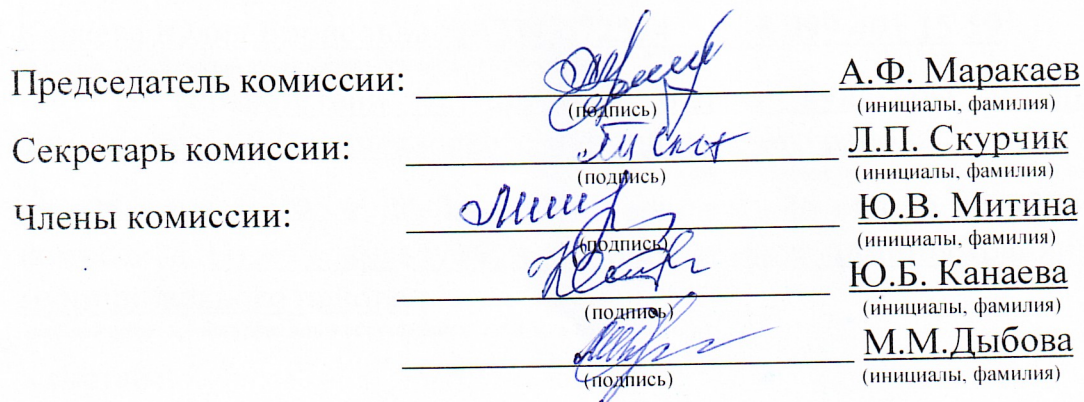 Председатель комиссии: А.Ф. Маракаев
(подпись) (инициалы, фамилия)
Секретарь комиссии: Л.П. Скурчик
(подпись) (инициалы, фамилия)
Члены комиссии: Ю.В. Митина
(подпись) (инициалы, фамилия)
Ю.Б. Канаева
(подпись) (инициалы, фамилия)
М.М.Дыбова
(подпись) (инициалы, фамилия)